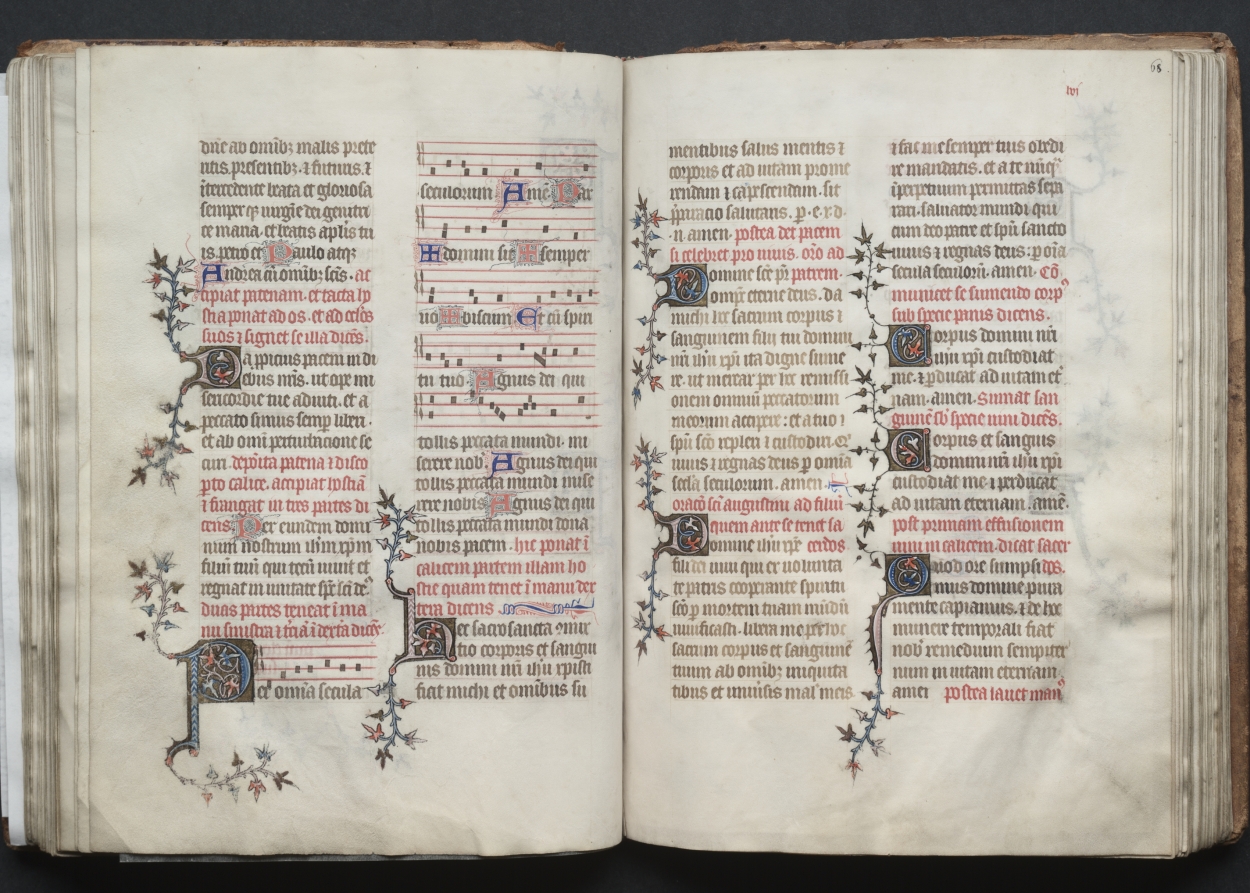 dne ab omibꝫ malis prete
ritis. presentibꝫ. ⁊ futuris. ⁊
intercedente beata et gloriosa
semper qꝫ uirgine dei genitri
ce maria. et beatis aplis tu
is. petro et Paulo atqꝫ
Andrea cũ omibꝫ scis. ac
cipiat patenam. et tacta ho
stia ponat ad os. et ad oclos
suos ⁊ signet se illa dicẽs.
Da propicius pacem in di
ebus nris. ut ope mi
sericordie tue adiuti. et a
peccato simus semp liberi.
et ab omi perturbacione se
curi. deposita patena ⁊ disco
opto calice. accipiat hostiã
⁊ frangat in tres partes di
cens Per eundem domi
num nostrum ihm xpm
filiũ tuũ qui tecũ uiuit et
regnat in unitate spc sci ds.
duas partes teneat ĩ ma
nu sinistra ⁊ tciã ĩ dexta dicẽs.
Per omia secula
seculorum Amẽ Pax
domini sit semper
uobiscum Et cũ spiri
tu tuo. Agnus dei qui
tollis peccata mundi. mi
serere nob. Agnus dei qui
tollis peccata mundi mise
rere nobis Agnus dei qui
tollis peccata mundi dona
nobis pacem. hic ponat ĩ
calicem partem illam ho
stie quam tenet ĩ manu dex
tera dicens
Hec sacrosancta cõmix
tio corporis et sangui
nis domini nri ihu xpisti
fiat michi et omibus su
68
lvi
mentibus salus mentis ⁊
corporis et ad uitam prome
rendam ⁊ capescendam. sit
pparacio salutaris. p. e. x. d.
n. amen. postea det pacem
si celebret pro uiuis. oro ad
Domine sce pr patrem.
omps eterne deus. da
michi hoc sacrum corpus ⁊
sanguinem filii tui domini
nri ihu xpi ita digne sume
re. ut merear per hoc remissi
onem omnium peccatorum
meorum accipere. et a tuo
spu sco repleri ⁊ custodiri. Qi
uiuis ⁊ regnas deus p omia
secla seculorum. amen.
oracõ sci augustini ad filiũ
quem ante se tenet sa
Domine ihu xpe cerdos
fili dei uiui qui ex uolunta
te patris cooperante spiritu
sco p mortem tuam mũdũ
uiuificasti. libera me per hoc
sacrum corpus et sanguinẽ
tuum ab omibꝫ iniquita
tibus et uniuersis malis meis
⁊ fac me semper tuis obedi
re mandatis. et a te nũqᷓ
ĩperpetuum permittas sepa
rari. saluator mundi qui
cum deo patre et spu sancto
uiuis ⁊ regnas deus. p oĩa
secula seculorũ. amen. Cõ
municet se sumendo corpus
sub specie panis dicens.
Corpus domini nri
ihu xpi custodiat
me. ⁊ pducat ad uitam et
nam. amen. Sumat san
guinẽ sb specie uini dicẽs.
Corpus et sanguis
domini nri ihu xpi
custodiat me ⁊ perducat
ad uitam eternam. amẽ.
post primam effusionem
uini in calicem. dicat sacer
Quod ore sumpsi dos.
mus domine pura
mente capiamus. ⁊ de hoc
munere temporali fiat
nob remedium sempiter
num in uitam eternam.
amen postea lauet man9